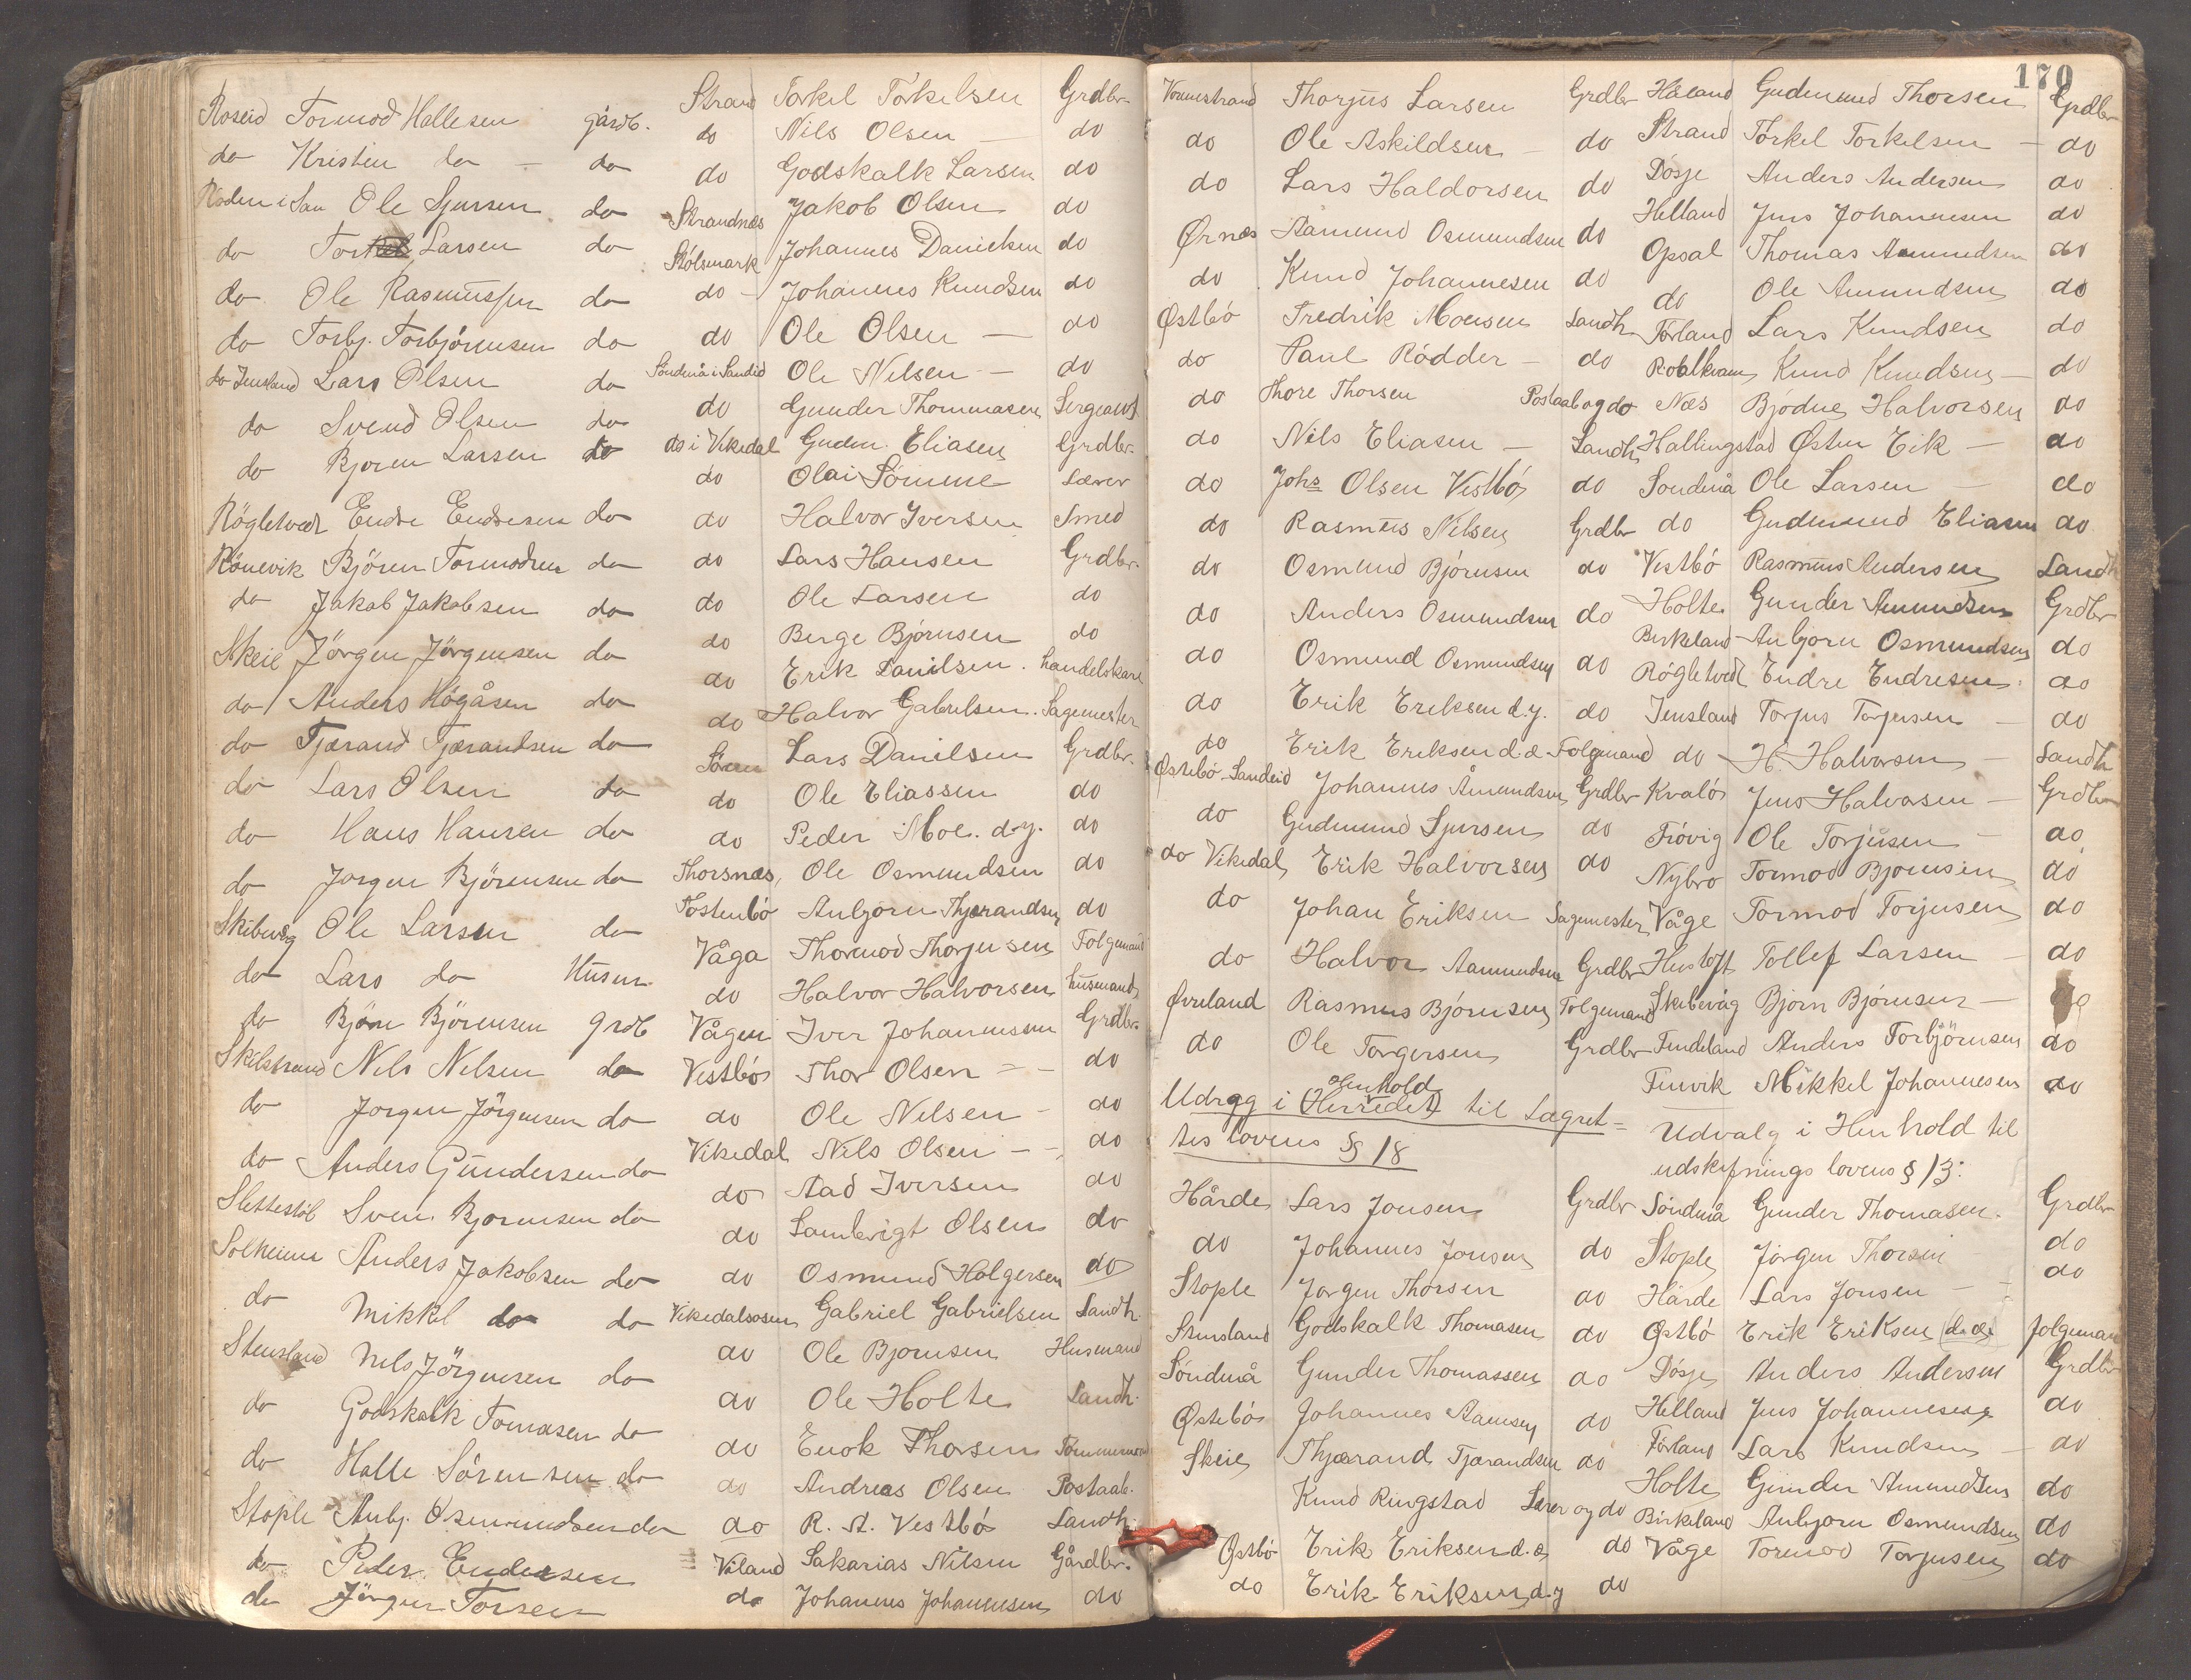 Roseid Tormod Hallesen gårdb.
do Kristen do - do
Røden i San Ole Sjursen do
do Larsen do
do Ole Rasmussen do
do Torbj. Torbjörnsen do
do Jensland Lars Olsen do
do Svend Olsen do
do Bjoren Larsen do
Røgletvedt Endre Endresen do
Rönevik Björen Tormodsen do
do Jakob Jakobsen do
Skeie Jörgen Jörgensen do
do Anders Högåsen do
do Tjærand Tjærandsen do
do Lars Olsen do
do Hans Hansen do
do Jorgen Björensen do
Skibevåg Ole Larsen do
do Lars do Husm.
do Björn Björensen grdb
Skibstrand Nils Nilsen do
do Jorgen Jörgensen do
do Anders Gundersen do
Slettestöl Sven Bjorensen do
Solheim Anders Jakobsen do
do Mikkel do do
Stensland Nils Jörgensen do
do Godskalk Tomasen do
do Halle Sörensen do
Stople Anbj. Osmundsen do
do Peder Endersen
do Jörgen Torsen
Strand Torkel Torkelsen Grdbr.
do Nils Olsen - do
do Godskalk Larsen do
Strandnæs Jakob Olsen do
Stölsmark Johannes Danielsen do
do - Johannes Knudsen do
do Ole Olsen - do
Söndenå i Sandeid Ole Nilsen - do
do Gunder Thommasen Sergeant
do i Vikedal Gudm. Eliasen Grdbr.
do Olai Sömme Lærer
do Halvor Iversen Smed
do Lars Hansen Grdbr.
do Ole Larsen do
do Berge Björnsen do
do Erik Danilsen. handelskarl
do Halvor Gabrielsen. Sagemester
Sören Lars Danielsen Grdbr.
do Ole Eliassen do
do Peder Moe. d.y. do
Thorsnæs, Ole Osmundsen do
Tostenbö Anbjorn Thjærandsen do
Våga Thormod Thorjusen Folgemand
do Halvor Halvorsen husmand
Vågen Iver Johannessen Grdbr.
Vestbö Thor Olsen - - do
do Ole Nilsen - do
Vikedal Nils Olsen - - do
do Aad Iversen do
do Lambrigt Olsen do
do Osmund Holgersen do
Vikedalsosen Gabriel Gabrielsen Landh.
do Ole Bjornsen Husmand
do Ole Holte Landh.
do Enok Thorsen Tömmermand
do Andreas Olsen Postaab.
do R. A. Vestbö Landh.
Viland Sakarias Nilsen Gårdbr.
do Johannes Johannessen do
170
Vormestrand Thorjus Larsen Grdbr
do Ole Askildsen - do
do Lars Haldorsen do
Ørnæs Aamund Osmundsen do
do Knud Johannesen do
Østbö Fredrik Monsen Landh
do Paul Rödder - do
do Thore Thorsen Postaab og do
do Nils Eliasen - Landh
do Johs Olsen Vestbö do
do Rasmus Nilsen Grdbr
do Osmund Björnsen do
do Anders Osmundsen do
do Osmund Osmundsen do
do Erik Eriksen d.y. do
do Erik Eriksen d.æ Folgemand
Østebö Sandeid Johannes Åmundsen Grdbr
do Gudmund Sjursen do
do Vikedal Erik Halvorsen do
do Johan Eriksen Sagemester
do Halvor Aamundsen Grdbr
Øvreland Rasmus Björnsen Folgemand
do Ole Torgersen Grdbr
Udrag i Herredet Henhold til Lagret-
tes lovens § 18
Hårde Lars Jonsen Grdbr
do Johannes Jonsen do
Stople Jorgen Thorsen do
Stensland Godskalk Thomasen do
Söndenå Gunder Thomassen do
Østebö Johannes Aamsen do
Skeie Thjærand Tjærandsen do
Knud Ringstad Lærer og do
Østbö Erik Eriksen d.æ do
do Erik Eriksen d.y do
Håland Gudmund Thorsen Grdbr
Strand Torkel Torkelsen - do
Dösje Anders Andersen do
Helland Jens Johannesen do
Opsal Thomas Aamundsen do
do Ole Amundsen do
Törland Lars Knudsen do
Robalkvam Knud Knudsen - do
Næs Bjödne Halvorsen do
Hallingstad Østen Eik - do
Söndenå Ole Larsen - do
do Gudmund Eliasen do
Vestbö Rasmus Andersen Landh
Holte Gunder Amundsen Grdbr
Birkeland Anbjorn Osmundsen do
Rögletvedt Endre Endresen do
Jensland Torjus Torjusen - do
do H. Halvorsen - Landh
Kvalö Jens Halvorsen - Grdbr
Frövig Ole Torjusen - do
Nybro Tormod Bjornsen do
Våge Tormod Torjusen do
Hustoft Tollef Larsen - do
Skibevåg Bjorn Björnsen - do
Tendeland Anders Torbjörnsen do
Fenvik Mikkel Johannesen do
Udvalg i Henhold til
udskiftnings lovens § 13:
Söndenå Gunder Thomasen. Grdbr
Stople Jörgen Thorsen do
Hårde Lars Jonsen - do
Østbö Erik Eriksen (d.æ) folgeman
Dösje Anders Andersen Grdbr
Helland Jens Johannesen do
Törland Lars Knudsen - do
Holte Gunder Amundsen do
Birkeland Anbjorn Osmundsen do
Våge Tormod Torjusen do